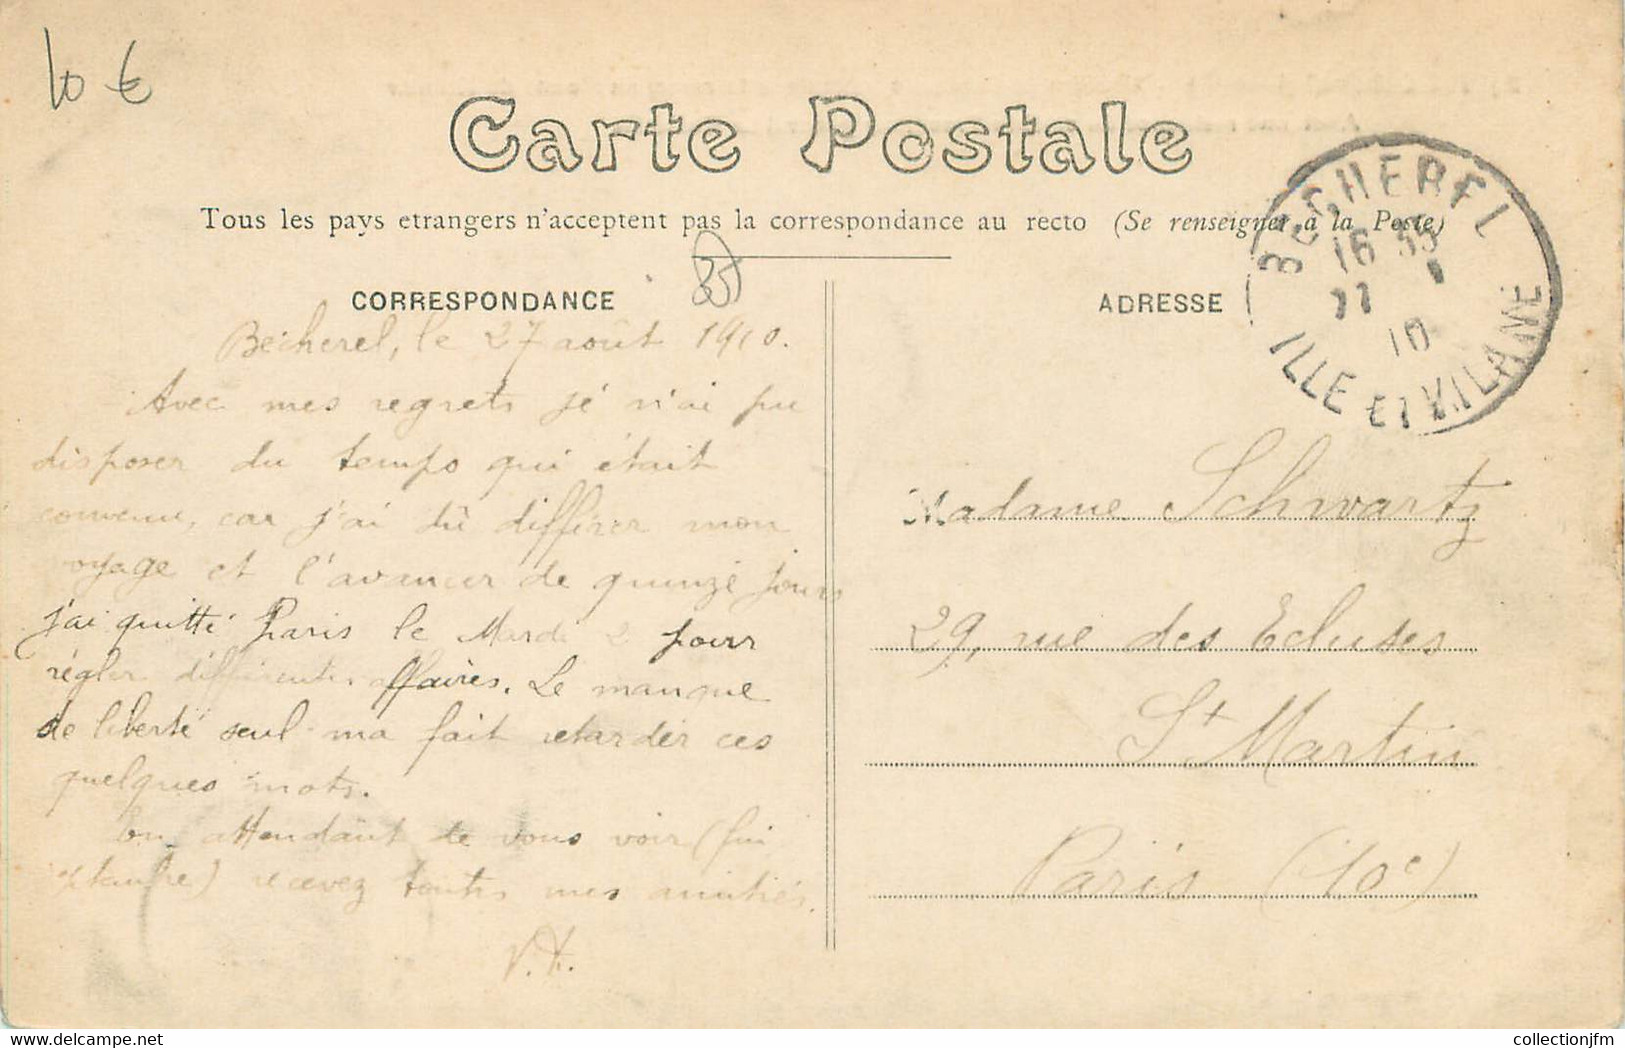 10 €
Carte Postale
Tous les pays etrangers n'acceptent pas la correspondance au recto (Se renseigner à la Poste)
35
CORRESPONDANCE
Bécherel, le 27 août 1910.
Avec mes regrets je n'ai pu
disposer du temps qui était
convenu, car j'ai dû différer mon
voyage et l'avancer de quinze jours
j'ai quitté Paris le Mardi 2 pour
régler différentes affaires. Le manque
de liberté seul ma fait retarder ces
quelques mots.
En attendant de vous voir (fin
septembre) recevez toutes mes amitiés.
ADRESSE
BECHEREL
16 55
10
ILLE ET VILAINE
Madame Schwartz
29, rue des Ecluses
St Martin
Paris (10e)
collectionjfm